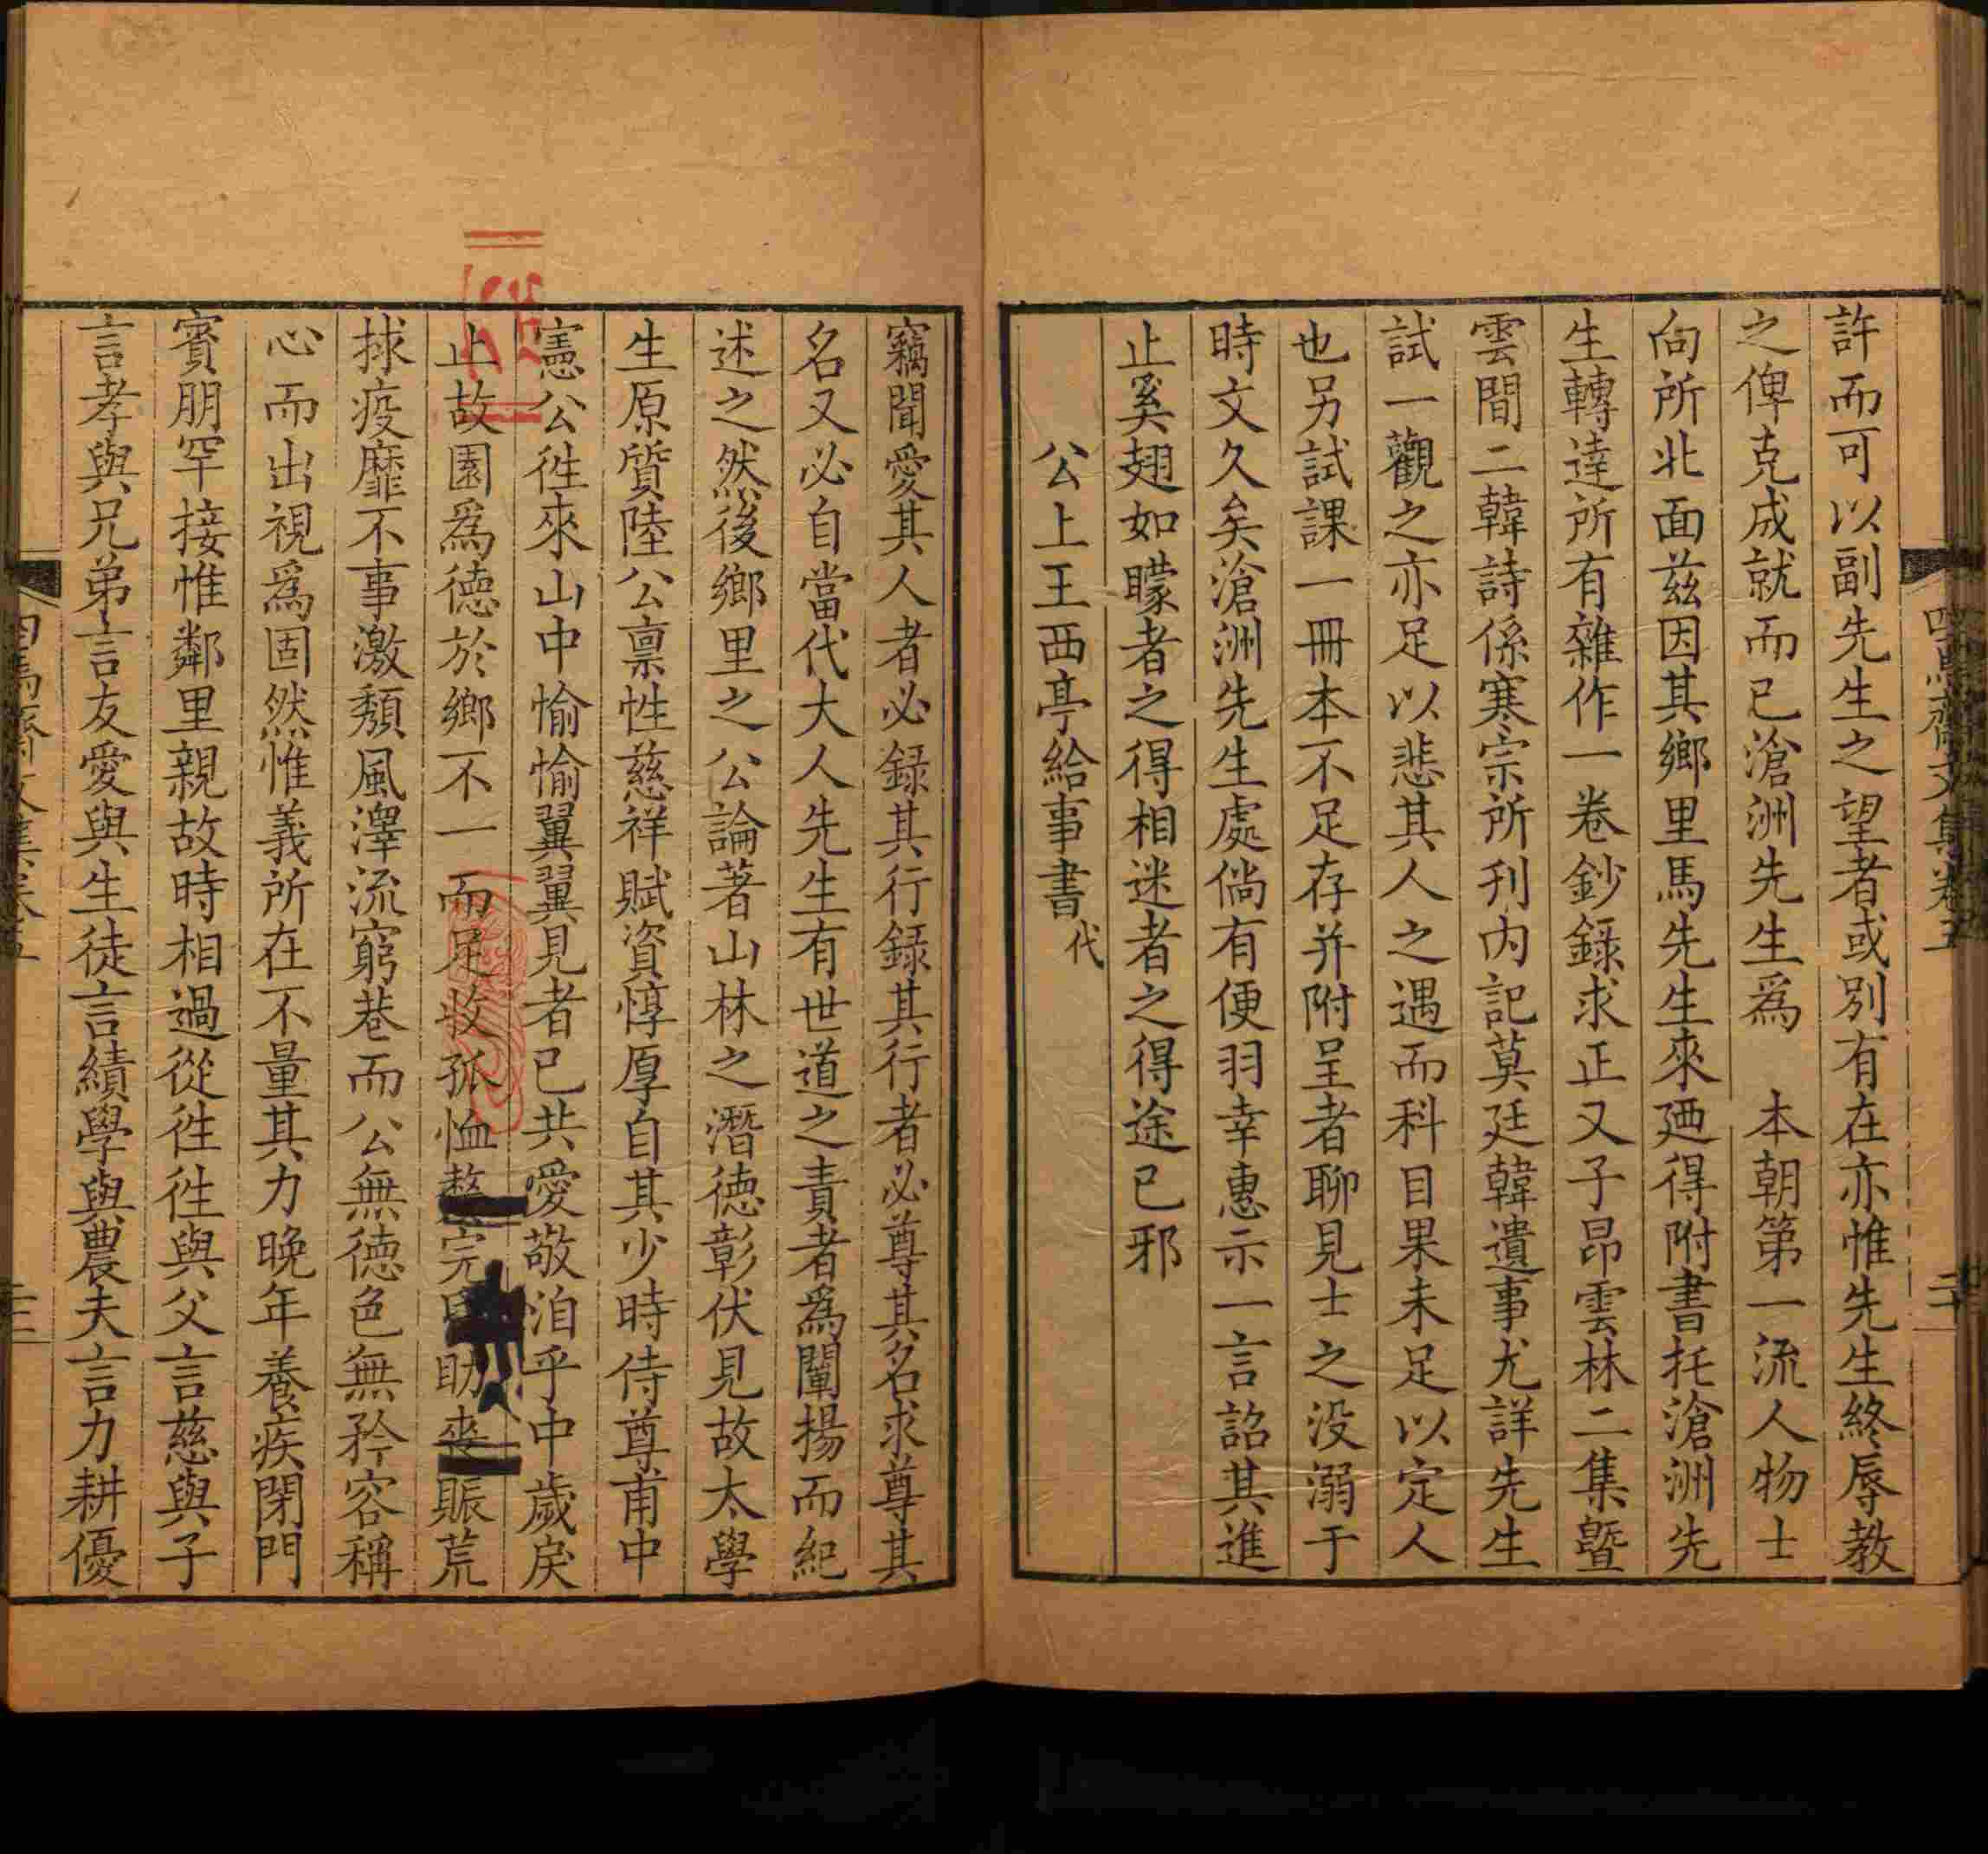 許而可以副先生之望者或別有在亦惟先生終辱教
之俾克成就而已滄洲先生爲　本朝第一流人物士
向所北面茲因其鄉里馬先生來廼得附書托滄洲先
生轉達所有雜作一卷鈔錄求正又子昂雲林二集曁
雲間二韓詩係寒宗所刋內記莫廷韓遺事尤詳先生
試一觀之亦足以悲其人之遇而科目果未足以定人
也另試課一冊本不足存并附呈者聊見士之没溺于
時文久矣滄洲先生處倘有便羽幸惠示一言詔其進
止奚翅如矇者之得相迷者之得途已邪
公上王西亭給事書代
竊聞愛其人者必録其行録其行者必尊其名求尊其
名又必自當代大人先生有世道之責者爲闡揚而紀
述之然後鄉里之公論著山林之潛德彰伏見故太學
生原質陸公禀性慈祥賦資惇厚自其少時侍尊甫中
憲公徃來山中愉愉翼翼見者已共愛敬洎乎中歲戾
止故園爲德於鄉不一而足收孤恤完助賑荒
捄疫靡不事激頽風澤流窮巷而公無德色無矜容稱
心而出視爲固然惟義所在不量其力晚年養疾閉門
賓朋罕接惟鄰里親故時相過從徃徃與父言慈與子
言孝與兄弟言友愛與生徒言績學與農夫言力耕優